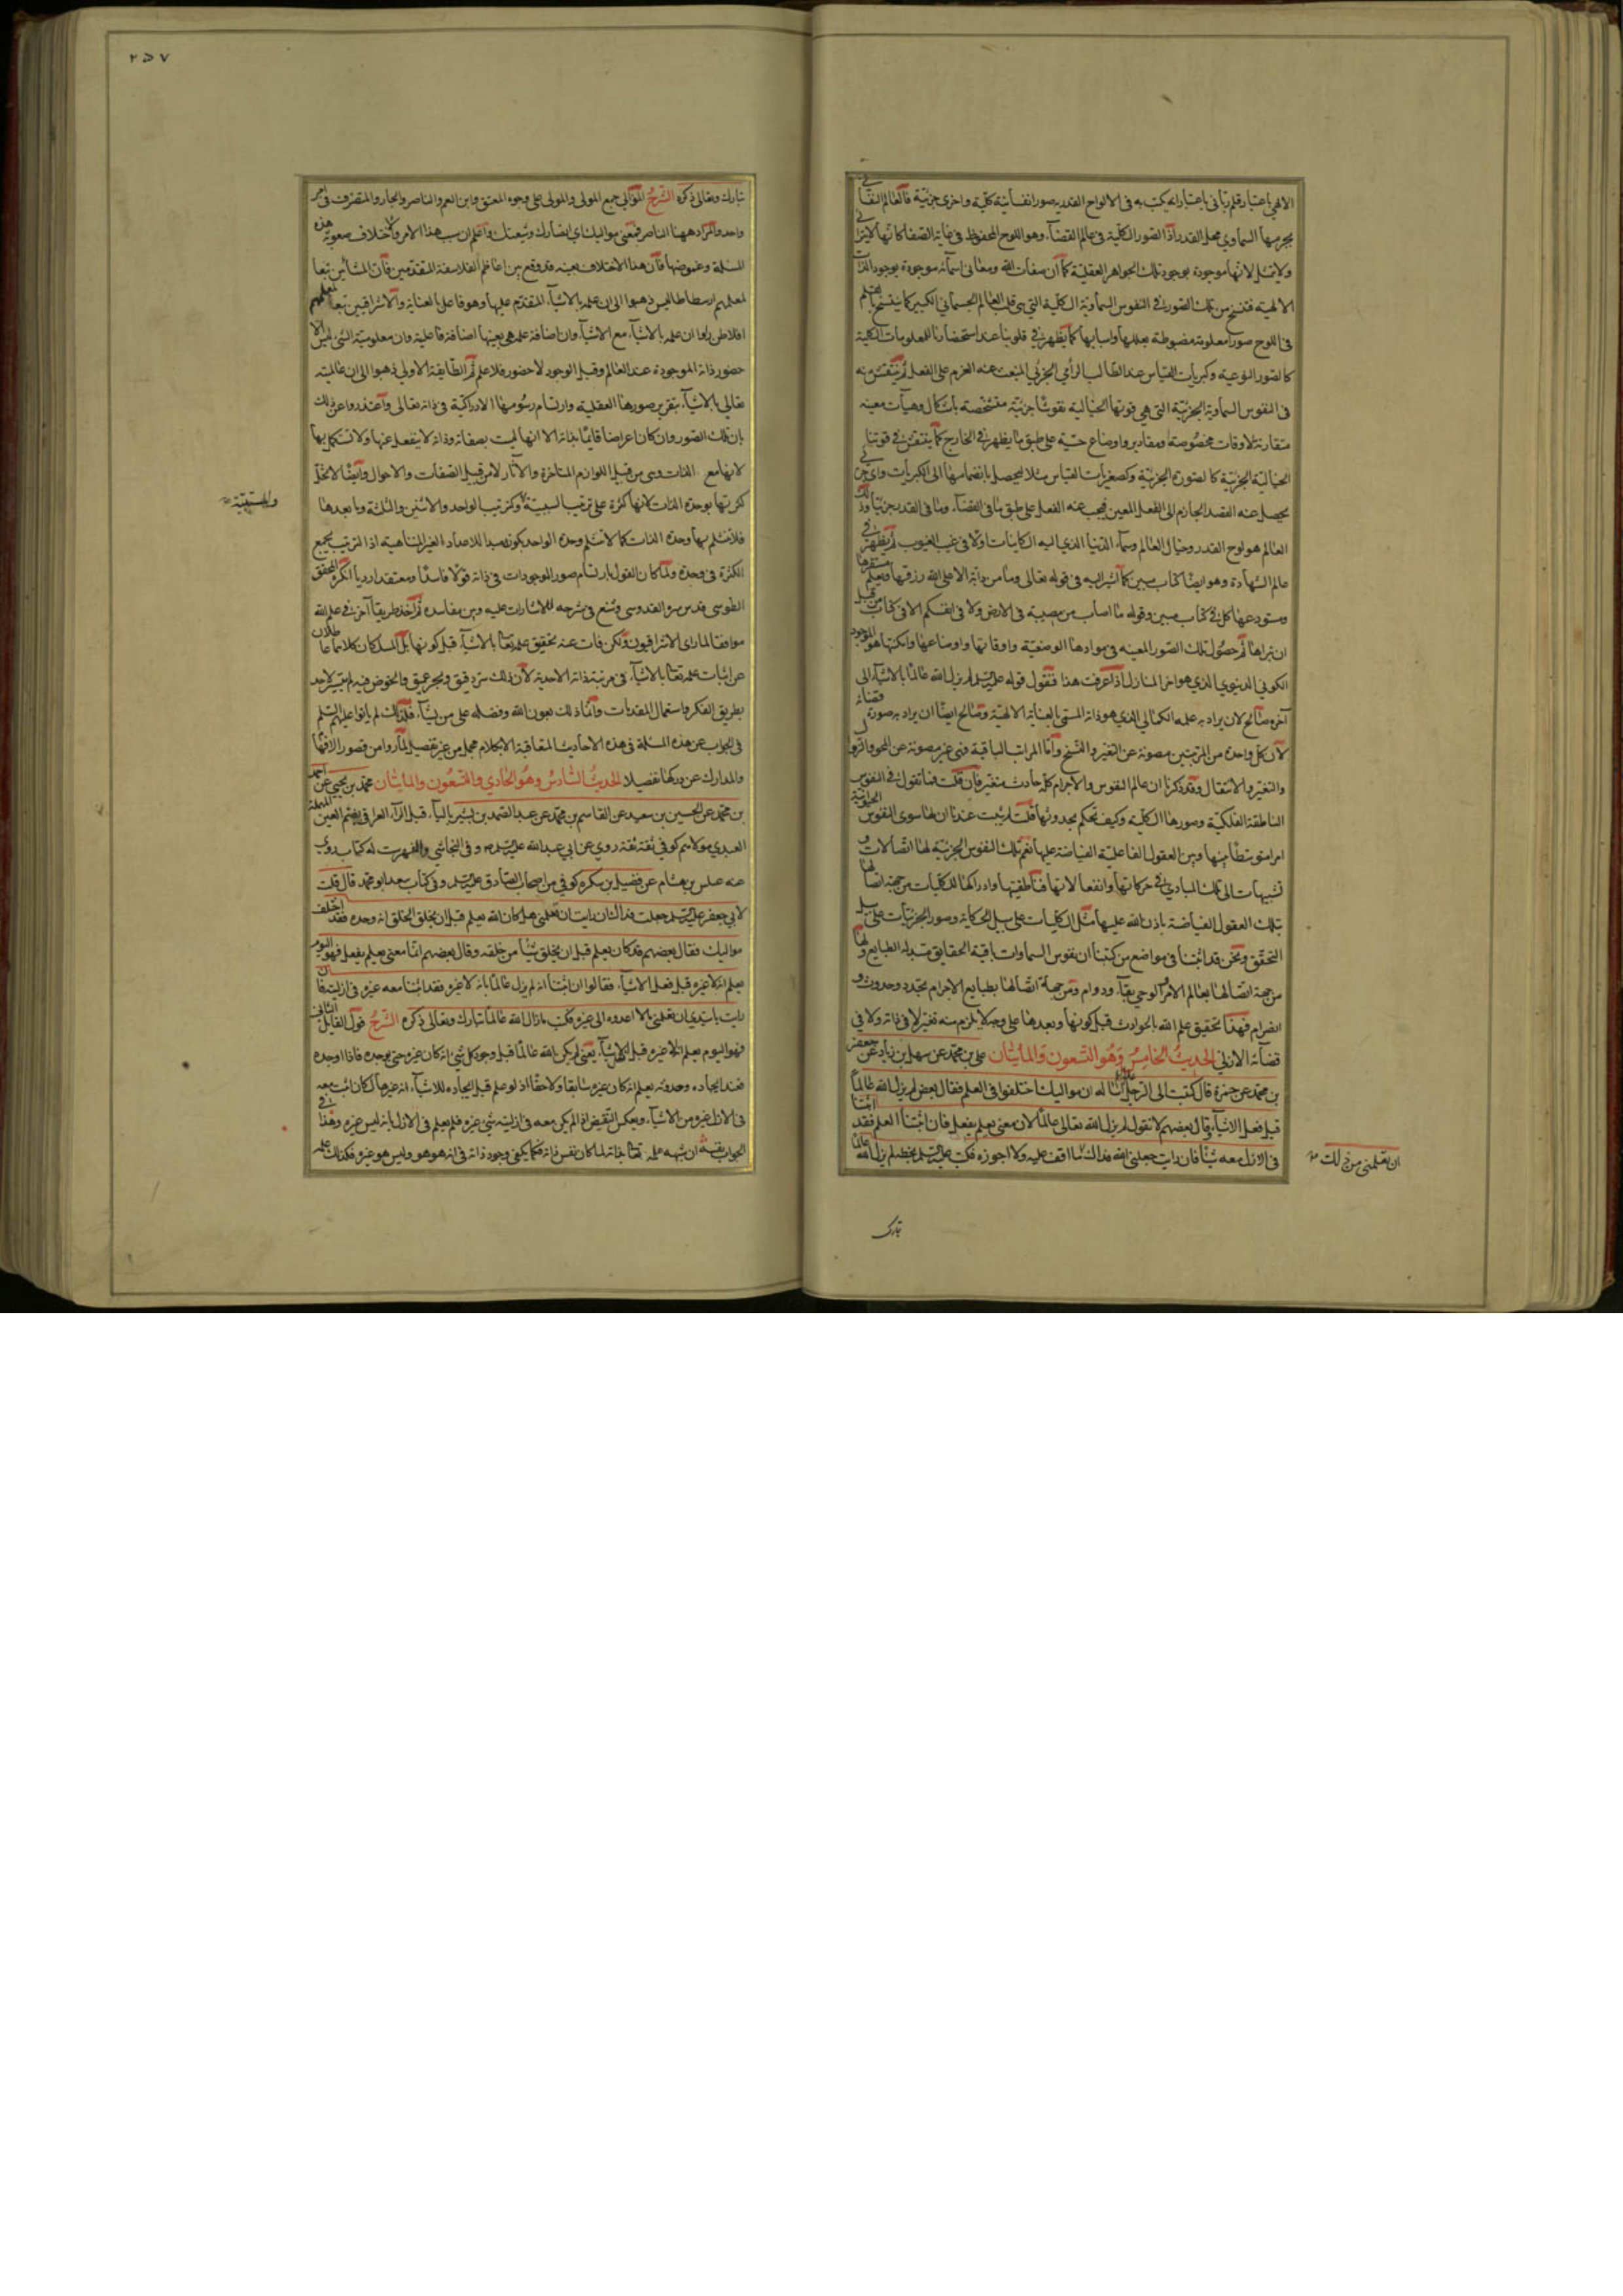 الالهي باعتبار قلم رباني باعتبار انه يكتب به في الالواح القدرية صورا نفسانية كلية واخرى جزئية فالعالم النفساني
بجرمها السماوي محل القدر اذا الصور الكلية في عالم القضآء وهو اللوح المحفوظ في غاية الصفا كانها لا يزال في
ولا يتبدل لانها موجودة بوجود تلك الجواهر العقلية كما ان صفات الله ومعاني اسمآئه موجودة بوجود الذات
الالهية فتنسخ من تلك الصور في النفوس السماوية الكلية التي هي قلب العالم الجسماني الكبير كما ينسخ بالقلم
في اللوح صورا معلومة مضبوطة بعللها واسبابها كما يظهر في قلوبنا عند استحضارنا للمعلومات الكلية
كالصور النوعية وكبريات القياس عند الطالب للرأي الجزئي المنبعث عنه العزم على الفعل ثم ينتقش منه
في النفوس السماوية الجزئية التي هي قوتها الخيالية نقوشا جزئية متشخصة باشكال وهيآت معينة
مقارنة لاوقات مخصوصة ومقادير واوضاع حسية على طبق ما يظهر في الخارج كما ينتقش في قوتنا
الخيالية الجزئية كالصورة الجزئية وكصغريات القياس مثلا ليحصل بانضمامها الى الكبريات رأي جزئي
يحصل عنه القصد الجازم الى الفعل المعين فيجب عنه الفعل على طبق ما في القضآء وما في القدر جزئيا وذلك
العالم هو لوح القدر وخيال العالم وسمآء الدنيا الذي اليه الكاينات اولا في غيب الغيوب ثم يظهر في
عالم الشهادة وهو ايضا كتاب مبين كما اشير اليه في قوله تعالى وما من دابة الا على الله رزقها ويعلم مستقرها
ومستودعها كل في كتاب مبين وقوله ما اصاب من مصيبة في الارض ولا في انفسكم الا في كتاب من قبل
ان نبراها ثم حصول تلك الصور المعينة في موادها الوضعية واوقاتها واوضاعها وامكنتها هو الوجود
الكوني الدنيوي الذي هو اخر المنازل اذا عرفت هذا فنقول قوله عليه السلم لم يزل الله عالما بالاشيآء الى
آخره صالح لان يراد به علمه الكمالي الذي هو ذاته المسمى بالعناية الالهية وصالح ايضا ان يراد به صورة قضائه
لان كل واحدة من المرتبتين مصونة عن التغير والنسخ واما المراتب الباقية فهي غير مصونة عن المحو والزوال
والتغير والانتقال وقد ذكرنا ان عالم النفوس والاجرام كله حادث متغير فان قلت فما تقول في النفوس
الناطقة الفلكية وصورها الكلية وكيف تحكم بحدوثها قلت لم يثبت عندنا ان لها سوى النفوس الحيوانية
امرا متوسطا بينها وبين العقول الفاعلية الفياضة عليها نعم تلك النفوس الجزئية لها اتصالات و
تشبهات الى تلك المبادي في حركاتها وانفعالاتها فناطقيتها وادراكها للكليات من جهة اتصالها
بتلك العقول الفياضة باذن الله عليها مثل الكليات على سبيل الحكاية وصور الجزئيات على سبيل
التحقق ونحن قد اثبتنا في مواضع من كتبنا ان نفوس السماوات باقية الحقايق متبدلة الطبايع ولها
من جهة اتصالها بعالم الامر الوحي بقآء ودوام ومن جهة اتصالها بطبايع الاجرام تجدد وحدوث و
انصرام فهذا تحقيق علم الله بالحوادث قبل كونها وبعدها على وجه لا يلزم منه تغير لا في ذاته ولا في
قضآئه الازلي الحديث الخامس وهو التسعون والمأيتان علي بن محمد عن سهل بن زياد عن جعفر
بن محمد عن حمزة قال كتبت الى الرجل عليه السلام اساله ان مواليك اختلفوا في العلم فقال بعض لم يزل الله عالما
قبل فعل الاشيآء وقال بعضهم لا نقول لم يزل الله تعالى عالما لان معنى يعلم يفعل فان اثبتنا العلم فقد اثبتنا
في الازل معه شيئا فان رايت جعلني الله فداك ما اقف عليه ولا اجوزه فكتب عليه السلم بخطه لم يزل الله عالما
ان تعلمني من ذلك
تبارك
٢٥٧
تبارك وتعالى ذكره الشرح الموالي جمع المولى والمولى على وجوه المعتق وابن العم والناصر والجار والمتصرف في امر
واحد والمراد ههنا الناصر فمعنى مواليك اي انصارك وشيعتك واعلم ان سبب هذا الامر والاختلاف صعوبة هذه
المسئلة وغموضها فان هذا الاختلاف بعينه قد وقع بين اعاظم الفلاسفة المتقدمين فان المشائين تبعا
لمعلمهم ارسطاطاليس ذهبوا الى ان علمه بالاشيآء المقدم عليها وهو فاعل بالعناية والاشراقيين تبعا لمعلمهم
افلاطن راوا ان علمه بالاشيآء مع الاشيآء وان اضافة علمه هي بعينها اضافة فاعلية وان معلومية الشئ ليس الا
حضور ذاته الموجودة عند العالم وقبل الوجود لا حضور فلا علم ثم الطايفة الاولى ذهبوا الى ان عالميته
تعالى بالاشيآء بتقرير صورها العقلية وارتسام رسومها الادراكية في ذاته تعالى واعتذروا عن ذلك
بان تلك الصور وان كان اعراضا قايمة بذاته الا انها ليست بصفاته وذاته لا ينفعل عنها ولا تستكمل بها
لانها مع الذات وهي من قبيل اللوازم المتاخرة والآثار لا من قبيل الصفات والاحوال وايضا لا تخل
كثرتها بوحدة الذات لانها كثرة على ترتيب السببية كترتيب الواحد والاثنين والثلثة وما بعدها
والمسببية
فلا تنثلم بها وحدة الذات كما لا تنثلم وحدة الواحد بكونه مبدا للاعداد الغير المتناهية اذ الترتيب يجمع
الكثرة في وحدة ولما كان القول بارتسام صور الموجودات في ذاته قولا فاسدا ومعتقدا رديا انكره المحقق
الطوسي قدس سره القدوسي وشنع في شرحه للاشارات عليه وبين مفاسده ثم اخذ طريقا آخر في علم الله
موافقا لما راى الاشراقيون ولكن فات عنه تحقيق علمه تعالى بالاشيآء قبل كونها
عن اثبات علمه تعالى بالاشيآء في مرتبة ذاته الاحدية لان ذلك سر دقيق وبحر عميق والخوض فيه لم يتيسر لاحد
بطريق الفكر واستعمال المقدمات وانما ذلك بعون الله وفضله على من يشآء فلذلك لم ياتوا عليهم السلم
في الجواب عن هذه المسئلة في هذه الاحاديث المتعاقبة الا بكلام مجمل من غير تفصيل لما راوا من قصور الافهام
والمدارك عن دركها تفصيلا الحديث السادس وهو الحادي والتسعون والمأيتان محمد بن يحيى عن احمد
بن محمد عن الحسين بن سعيد عن القاسم بن محمد عن عبد الصمد بن بشير باليآء قبل الرآء العرامي بضم العين المهملة
العبدي مولاهم كوفي ثقة ثقة روي عن ابي عبد الله عليه السلم صه وفي النجاشي والفهرست له كتاب روى
عنه عبيس بن هشام عن فضيل بن سكره كوفي من اصحاب الصادق عليه السلم وفي كتاب سعد ابو محمد قال قلت
لابي جعفر عليه السلم جعلت فداك ان رايت ان تعلمني هل كان الله يعلم قبل ان يخلق الخلق انه وحده فقد اختلف
مواليك فقال بعضهم قد كان يعلم قبل ان يخلق شيئا من خلقه وقال بعضهم انما معنى يعلم يفعل فهو اليوم
يعلم انه لا غيره قبل فعل الاشيآء فقالوا ان اثبتنا انه لم يزل عالما بانه لا غيره فقد اثبتنا معه غيره في ازليته فان
رايت ياسيدي ان تعلمني ما لا اعدوه الى غيره فكتب ما زال الله عالما تبارك وتعالى ذكره الشرح قول القايل الثاني
فهو اليوم يعلم انه لا غيره قبل الاشيآء يعني لم يكن الله عالما قبل وجود كل شئ انه كان غيره حتى يوجده فاذا اوجده
فعند ايجاده وحدوثه يعلم انه كان غيره سابقا ولاحقا اذ لو علم قبل ايجاده للاشيآء انه غيرها لكان اثبت معه
في الازل غيره من الاشيآء وبعكس النقيض اذا لم يكن معه في ازليته شئ غيره فلم يعلم في الازل بانه ليس غيره وهذا